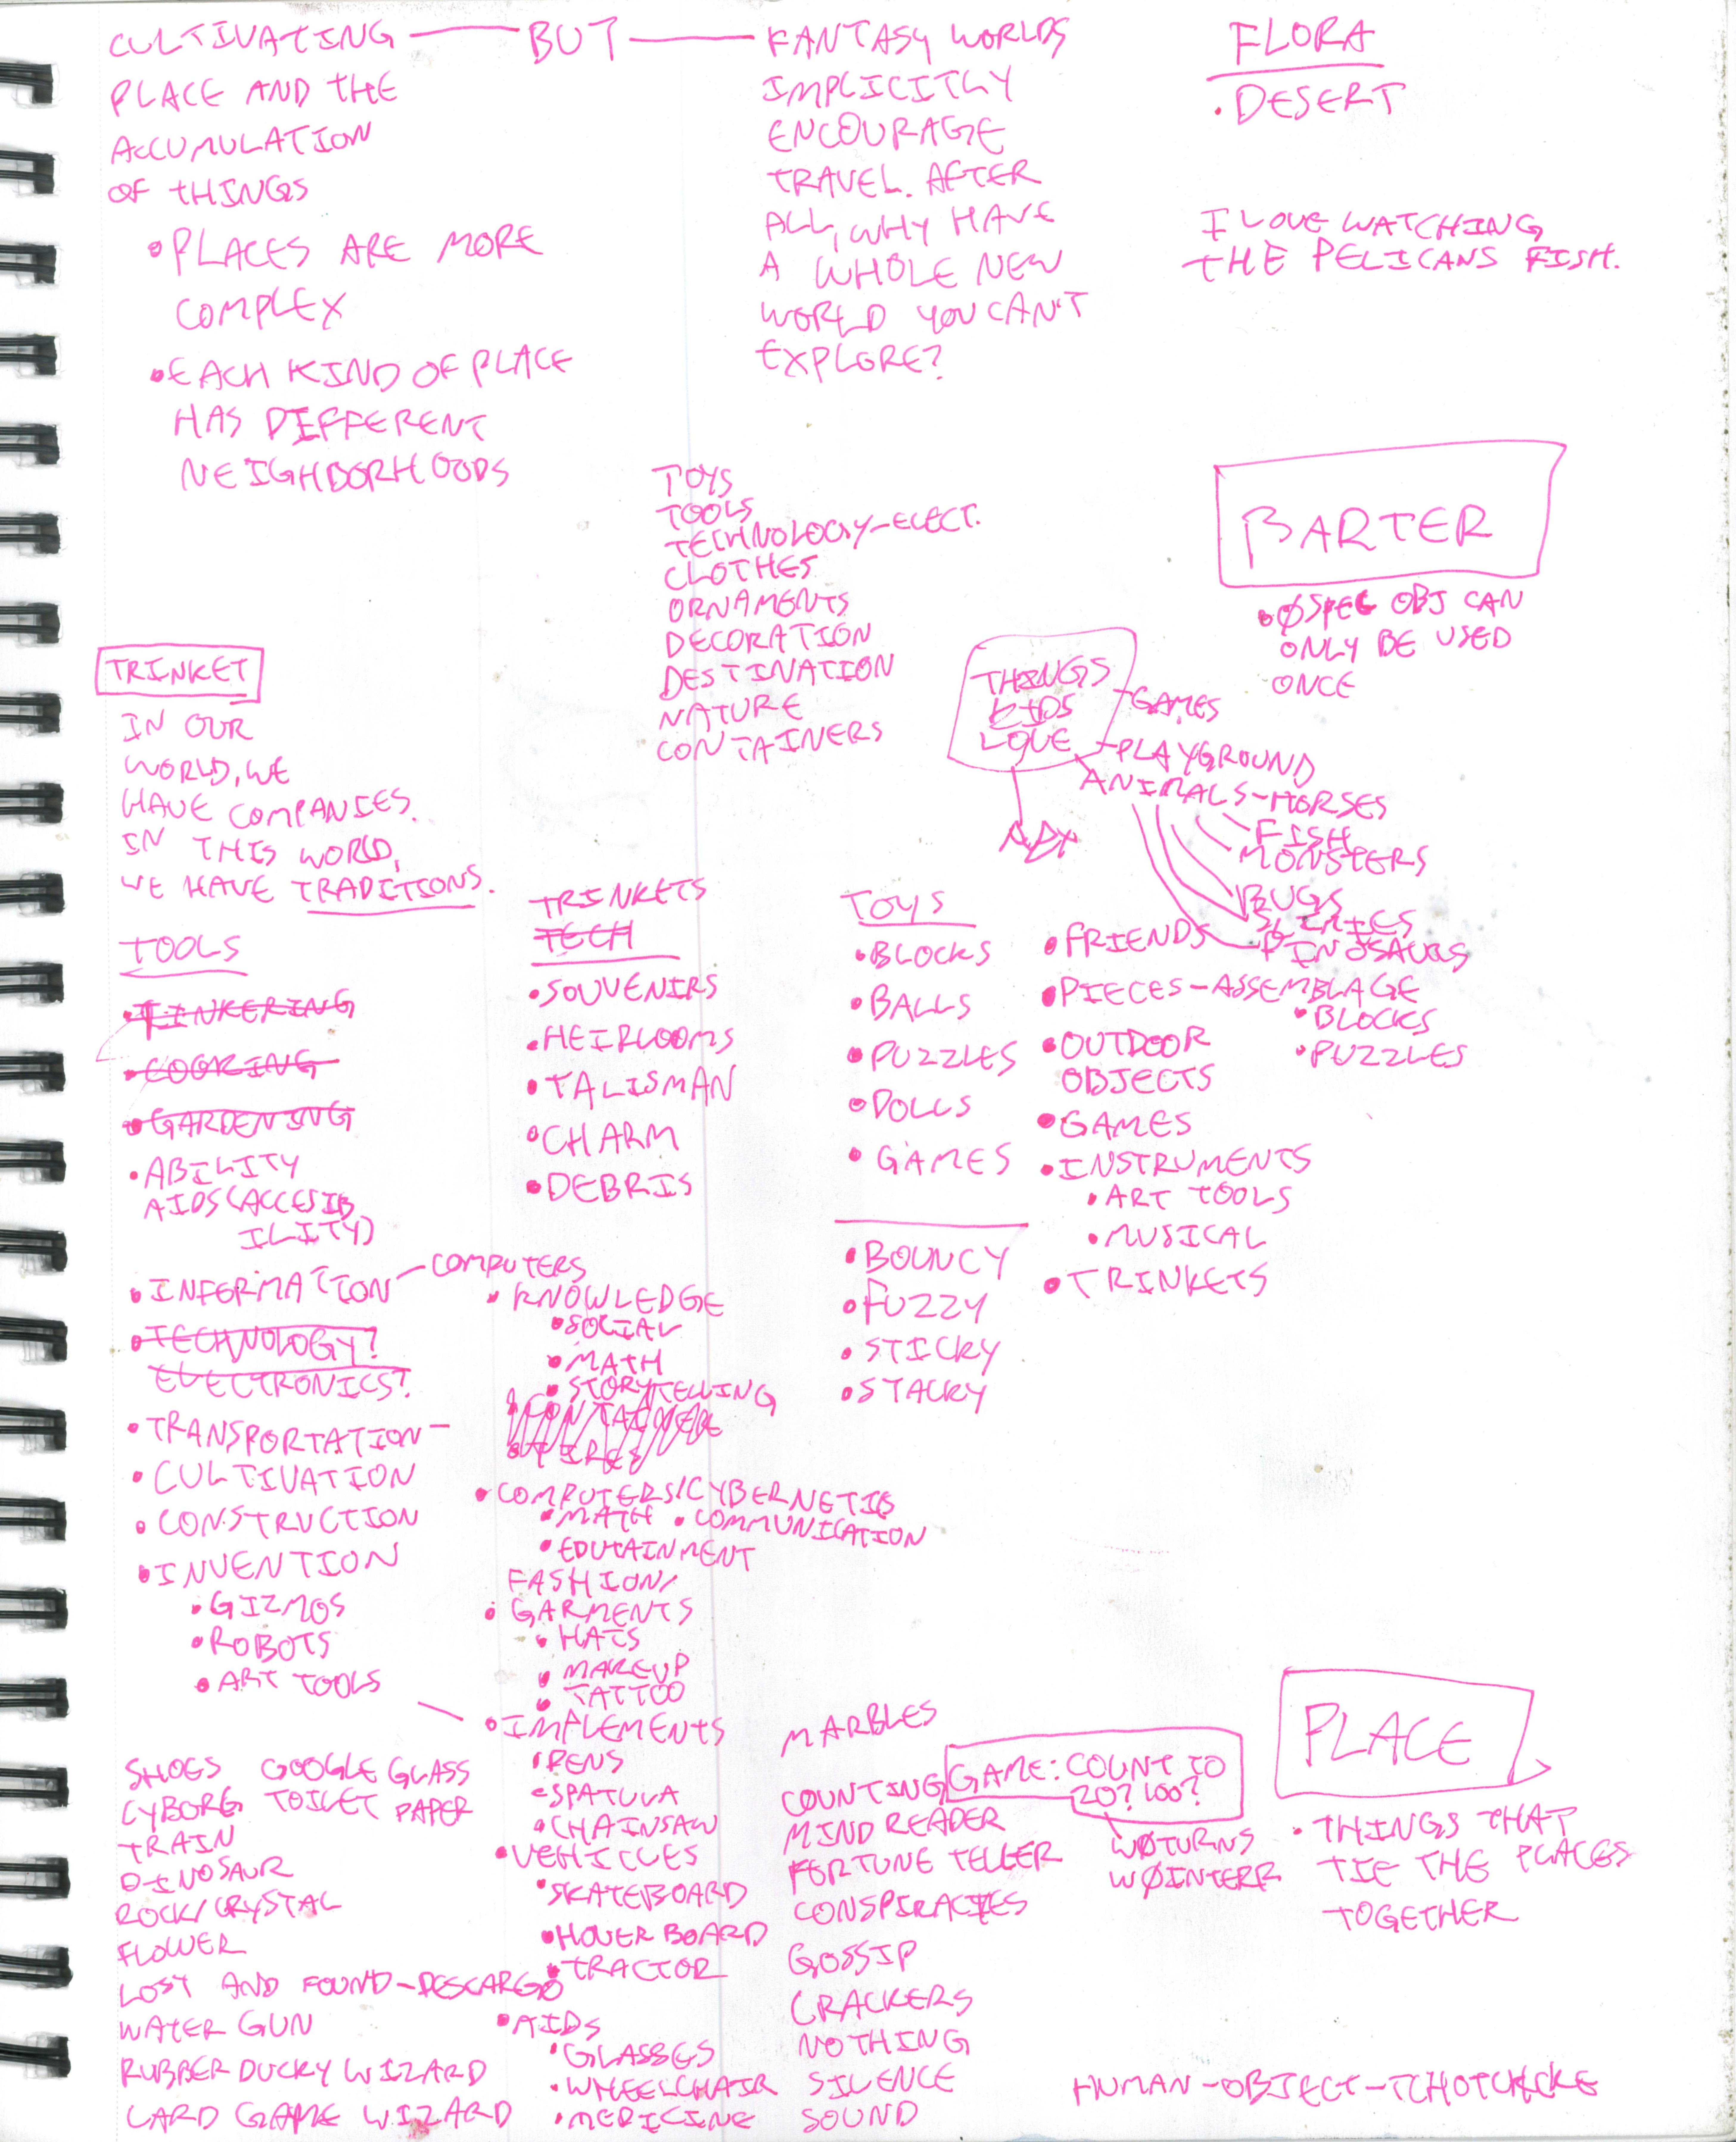 CULTIVATING
PLACE AND THE
ACCUMULATION
OF THINGS
• PLACES ARE MORE
COMPLEX
• EACH KIND OF PLACE
HAS DIFFERENT
NEIGHBORHOODS
BUT
FANTASY WORLDS
IMPLICITLY
ENCOURAGE
TRAVEL. AFTER
ALL, WHY HAVE
A WHOLE NEW
WORLD YOU CAN'T
EXPLORE?
FLORA
• DESERT
I LOVE WATCHING
THE PELICANS FISH.
TOYS
TOOLS
TECHNOLOGY-ELECT.
CLOTHES
ORNAMENTS
DECORATION
DESTINATION
NATURE
CONTAINERS
BARTER
• ØSPEC OBJ CAN
ONLY BE USED
ONCE
THINGS
KIDS
LOVE
-GAMES
-PLAYGROUND
ANIMALS-HORSES
FISH
MONSTERS
BUGS
SLIMIES
DINOSAURS
TRINKET
IN OUR
WORLD, WE
HAVE COMPANIES.
IN THIS WORLD,
WE HAVE TRADITIONS.
TOOLS
• TINKERING
• COOKING
• GARDENING
• ABILITY
AIDS (ACCESIB
ILITY)
• INFORMATION - COMPUTERS
• TECHNOLOGY?
ELECTRONICS?
• TRANSPORTATION -
• CULTIVATION
• CONSTRUCTION
• INVENTION
• GIZMOS
• ROBOTS
• ART TOOLS
TRINKETS
TECH
• SOUVENIRS
• HEIRLOOMS
• TALISMAN
• CHARM
• DEBRIS
• KNOWLEDGE
• SOCIAL
• MATH
• STORYTELLING
• COMPUTERS/CYBERNETICS
• MATH • COMMUNICATION
• EDUTAINMENT
FASHION/
• GARMENTS
• HATS
• MAKEUP
• TATTOO
• IMPLEMENTS
• PENS
• SPATULA
• CHAINSAW
• VEHICLES
• SKATEBOARD
• HOVERBOARD
• TRACTOR
• AIDS
• GLASSES
• WHEELCHAIR
• MEDICINE
TOYS
• BLOCKS
• BALLS
• PUZZLES
• DOLLS
• GAMES
• BOUNCY
• FUZZY
• STICKY
• STACKY
• FRIENDS
• PIECES-ASSEMBLAGE
• BLOCKS
• PUZZLES
• OUTDOOR
OBJECTS
• GAMES
• INSTRUMENTS
• ART TOOLS
• MUSICAL
• TRINKETS
SHOES GOOGLE GLASS
CYBORG TOILET PAPER
TRAIN
DINOSAUR
ROCK/CRYSTAL
FLOWER
LOST AND FOUND-DESCARGO
WATER GUN
RUBBER DUCKY WIZARD
CARD GAME WIZARD
MARBLES
COUNTING GAME: COUNT TO
20? 100?
MIND READER
FORTUNE TELLER
CONSPIRACIES
GOSSIP
CRACKERS
NOTHING
SILENCE
SOUND
WØTURNS
WØINTERR
PLACE
• THINGS THAT
TIE THE PLACES
TOGETHER
HUMAN-OBJECT-TCHOTCHCKE